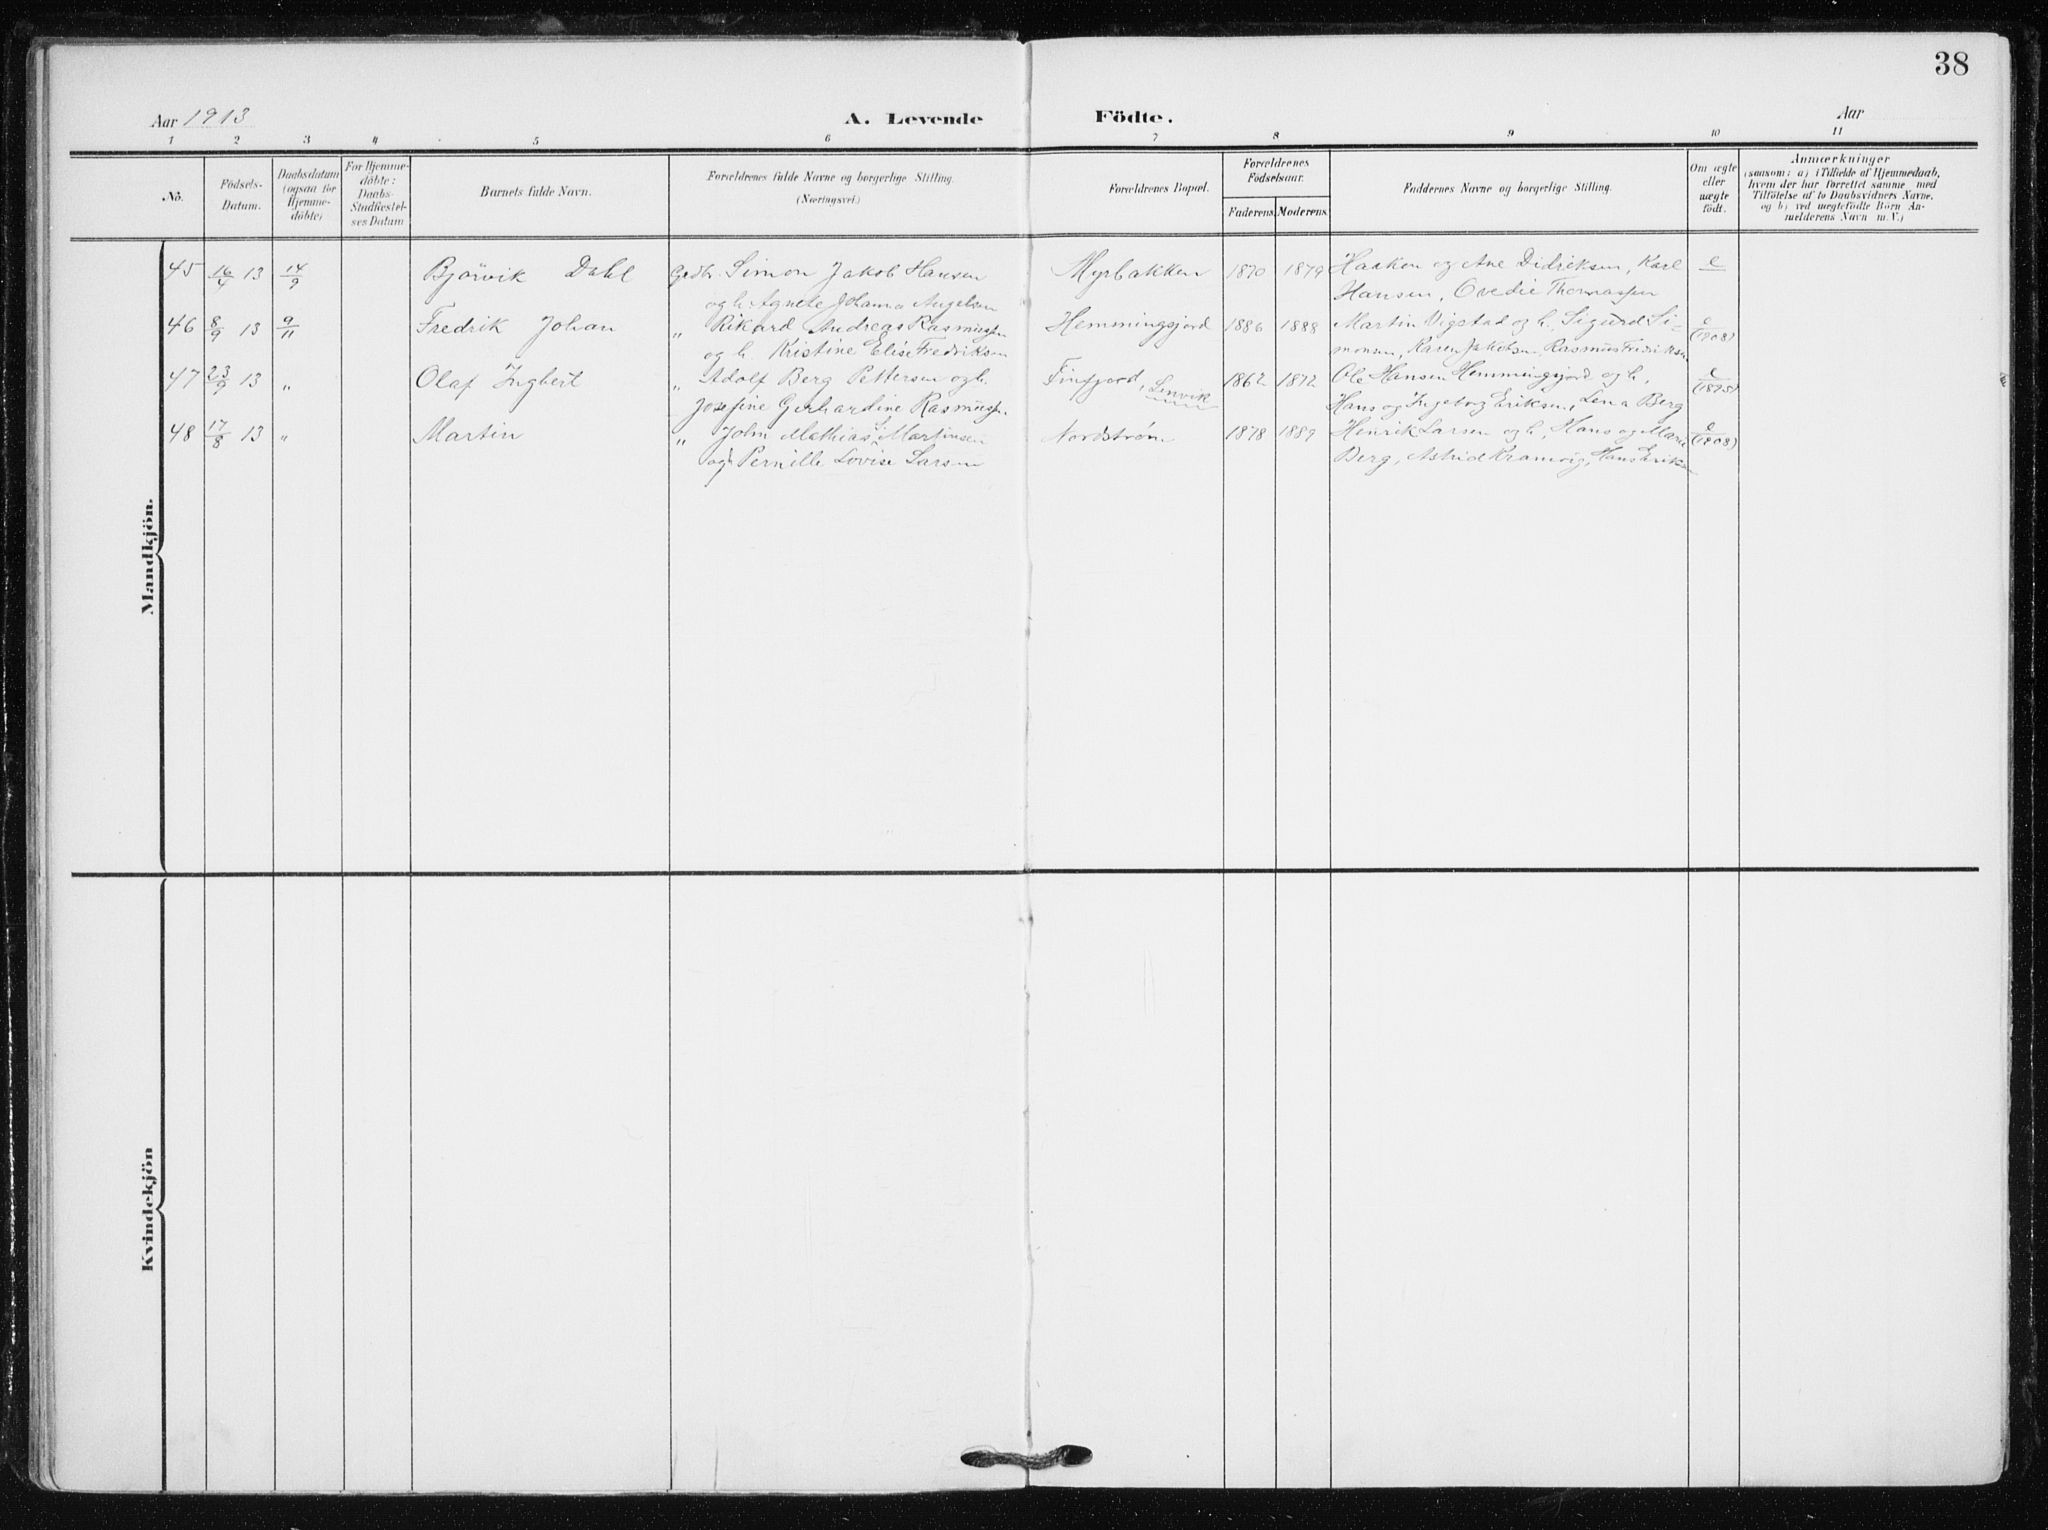 38
Aar 1913
A. Levende Födte.
Aar
1 2 3 4 5 6 7 8 9 10 11
No.
Födsels-
Datum.
Daabsdatum
(ogsaa for
Hjemme-
döbte)
For Hjemme-
döbte:
Daabs-
Stadfæstel-
ses Datum
Barnets fulde Navn.
Forældrenes fulde Navne og borgerlige Stilling.
(Næringsvei.)
Forældrenes Bopæl.
Forældrenes
Födselsaar.
Faderens. Moderens.
Faddernes Navne og borgerlige Stilling.
Om ægte
eller
uægte
födt.
Anmærkninger
(saasom: a) i Tilfælde af Hjemmedaab,
hvem der har forrettet samme med
Tilföielse af to Daabsvidners Navne,
og b) ved uægtefödte Börn An-
melderens Navn m. V.)
Mandkjön.
45 16/4 13 14/9 Bjørvik Dahl Gvdbr. Simon Jakob Hansen Myrbakken 1870 1879 Haaken og Ane Didriksen, Karl e
og h. Agnete Johanna Angelsen Hansen, Ovedie Thomassen
46 8/9 13 9/11 Fredrik Johan „ Rikard Andreas Rasmussen Hemmingsjord 1886 1888 Martin Vigstad og h., Sigurd Si- e
og h. Kristine Elise Fredriksen monsen, Karen Jakobsen, Rasmus Fredriksen (1908)
47 23/9 13 „ Olaf Ingbert „ Adolf Berg Pettersen og h. Finfjord, Lenvik 1867 1872 Ole Hansen Hemmingsjord og h., e
Josefine Gerhardine Rasmussen Hans og Ingeborg Eriksen, Lena Berg (1895)
48 17/8 13 „ Martin „ John Mathias Martinsen Nordstrøm 1878 1889 Henrik Larsen og h., Hans og Marie e
og h. Pernille Lovise Larsen Berg, Astrid Kramvig, Hans Eriksen (1908)
Kvindekjön